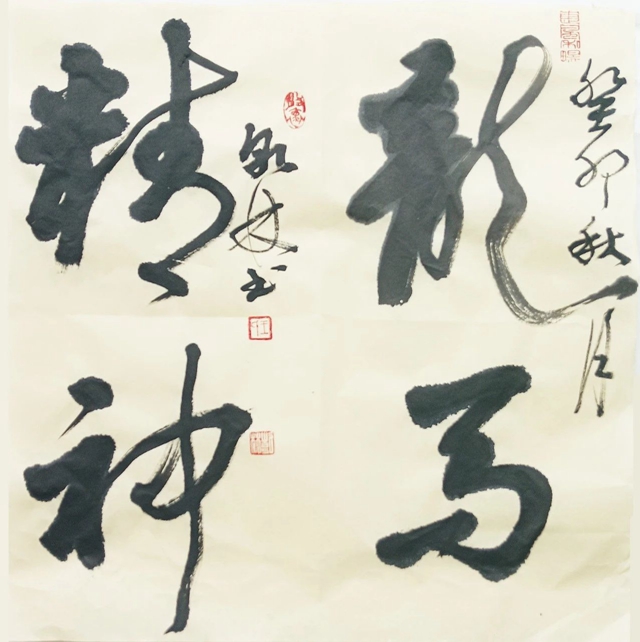 癸卯秋月
龍馬
精神
林书